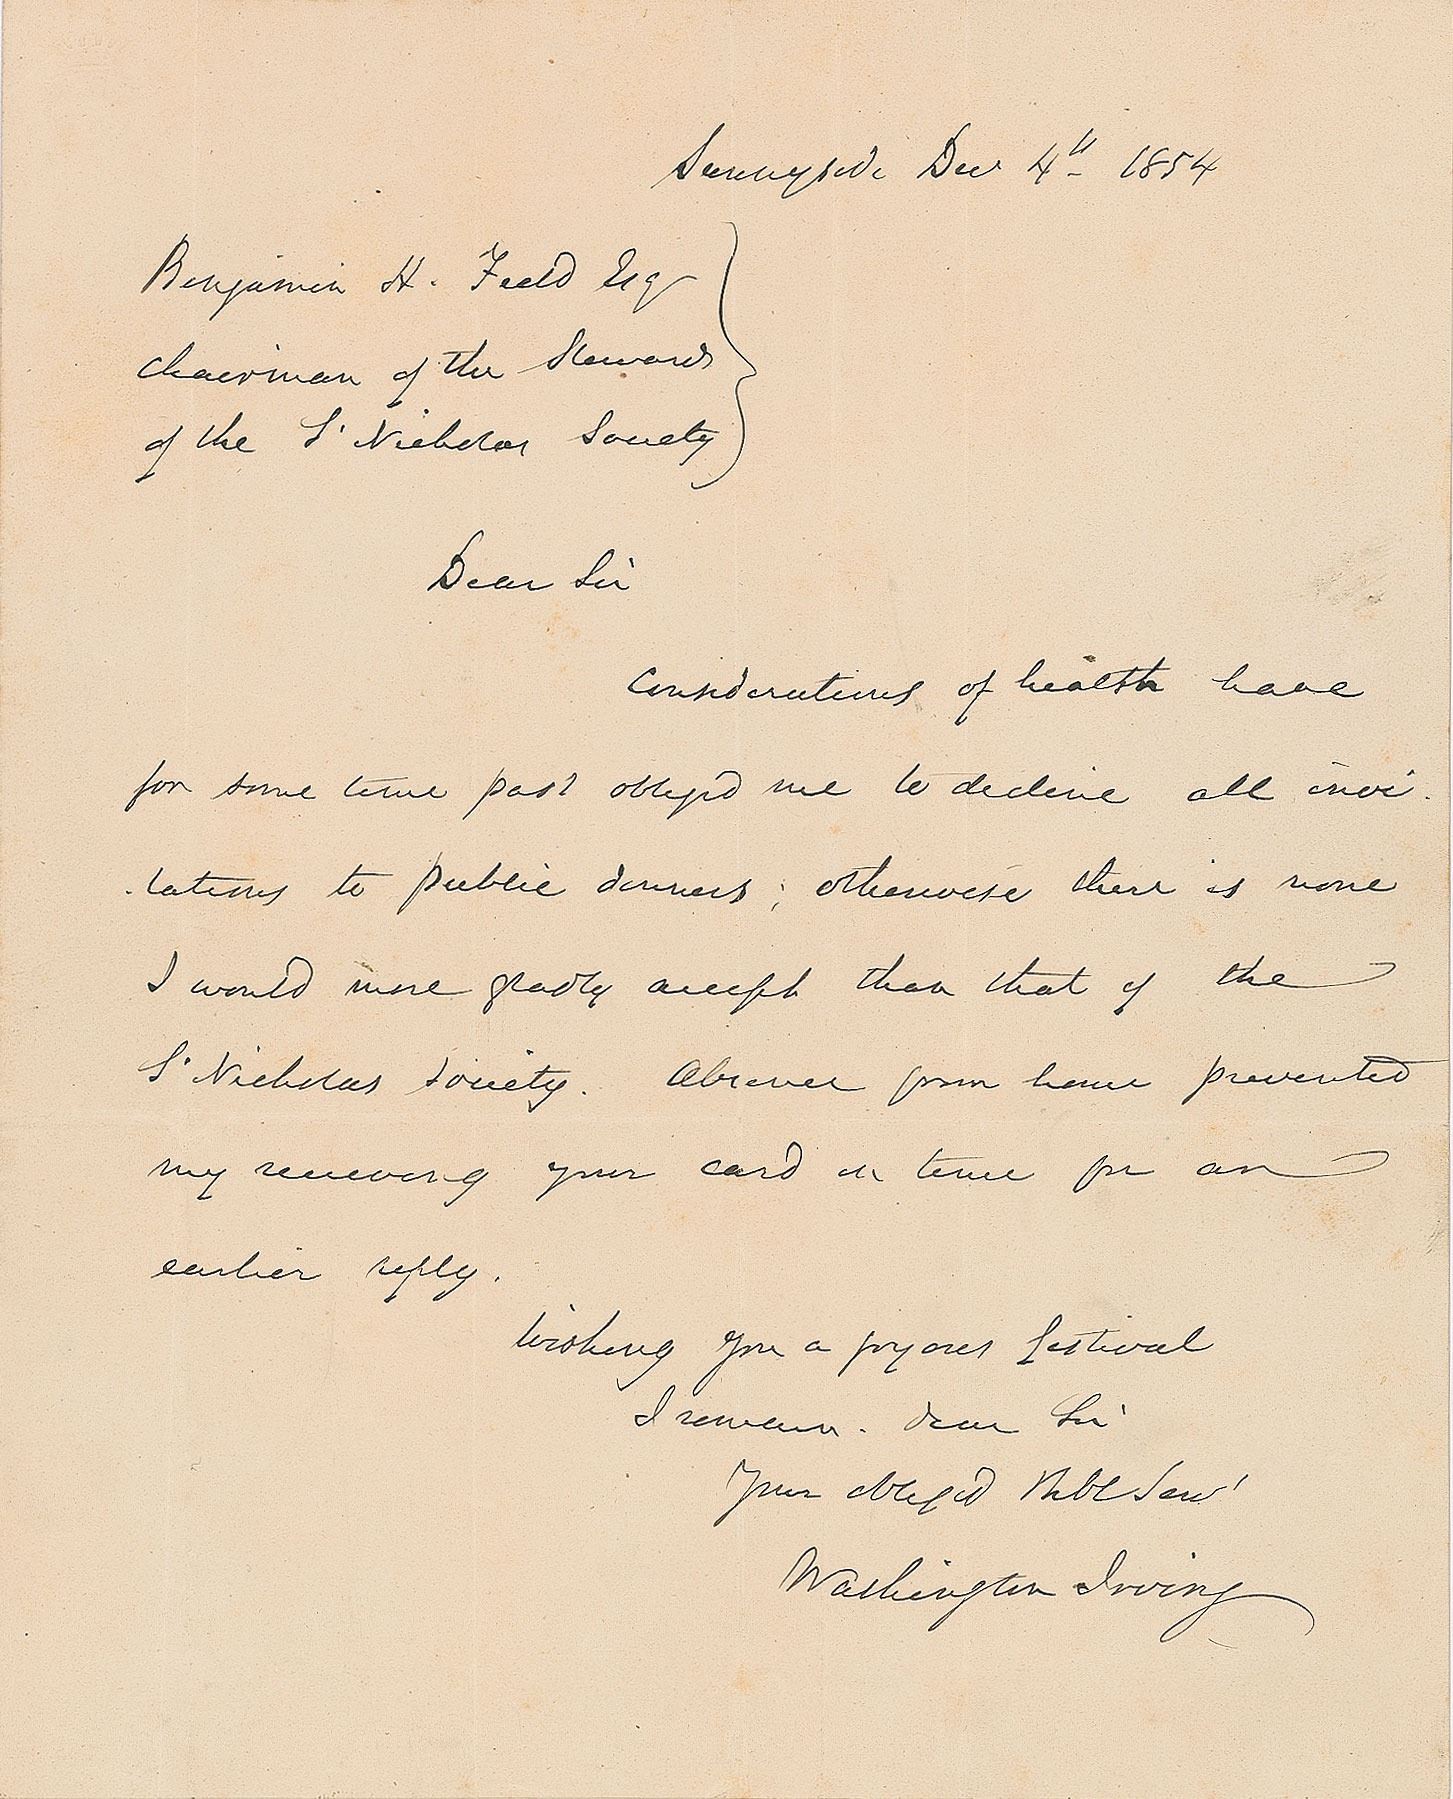 Sunnyside Dec 4th 1854
Benjamin H. Field Esq
Chairman of the Stewards
of the St Nicholas Society
Dear Sir
Considerations of health have
for some time past obliged me to decline all invi-
-tations to public dinners; otherwise there is none
I would more gladly accept than that of the
St Nicholas Society. Absence from home prevented
my receiving your card in time for an
earlier reply.
Wishing you a joyous festival
I remain. dear Sir
Your obliged hbl Servt
Washington Irving